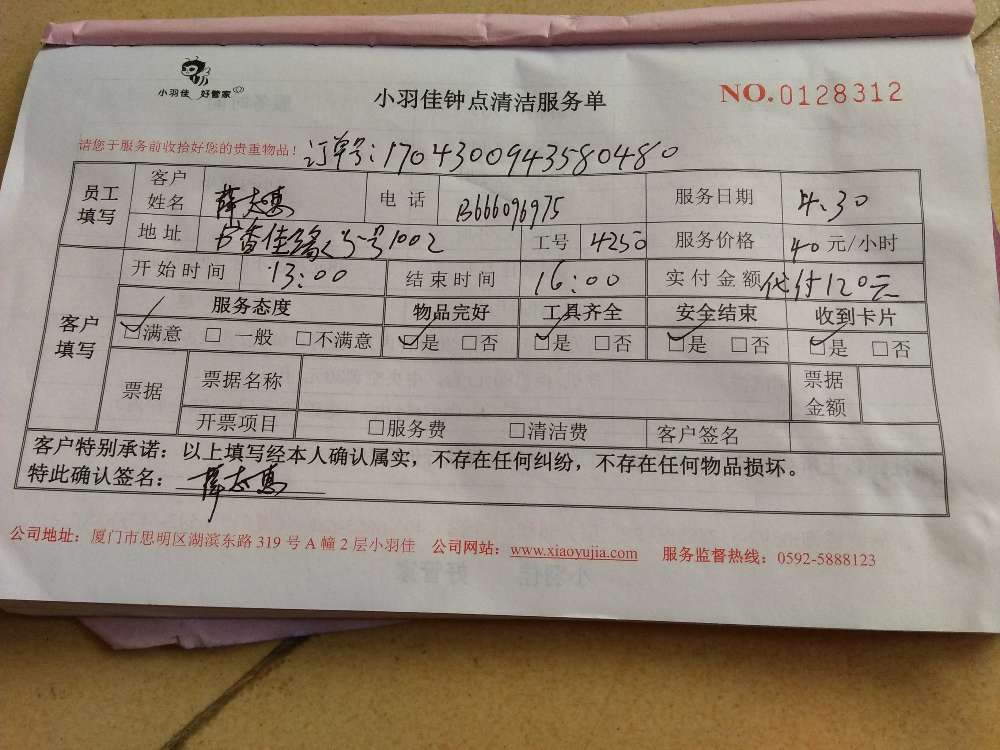 小羽佳 好管家
小羽佳钟点清洁服务单
NO.0128312
请您于服务前收拾好您的贵重物品! 订单号:1704300943580480
员工填写 客户姓名 薛志惠 电话 13666096975 服务日期 4.30
地址 书香佳缘 5号1002 工号 4250 服务价格 40元/小时
客户填写 开始时间 13:00 结束时间 16:00 实付金额 代付120元
服务态度 物品完好 工具齐全 安全结束 收到卡片
☑满意 □一般 □不满意 ☑是 □否 ☑是 □否 ☑是 □否 ☑是 □否
票据 票据名称 票据金额
开票项目 □服务费 □清洁费 客户签名
客户特别承诺:以上填写经本人确认属实,不存在任何纠纷,不存在任何物品损坏。
特此确认签名: 薛志惠
公司地址:厦门市思明区湖滨东路 319 号 A 幢 2 层小羽佳 公司网站:www.xiaoyujia.com 服务监督热线:0592-5888123